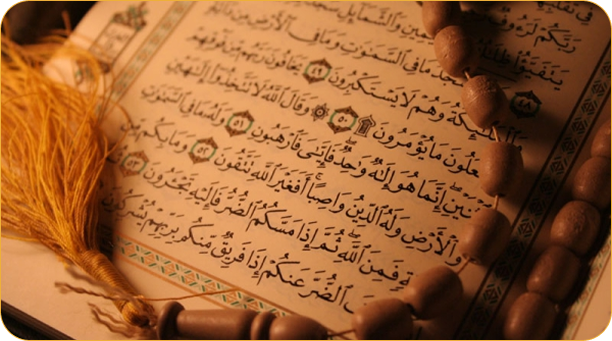 فِى تَقَلُّبِهِمْ
رَبَّكُمْ لَرَءُوفٌ
يَتَفَيَّؤُا۟ ظِلَـٰلُهُ ٱلْيَمِينِ وَٱلشَّمَآئِلِ سُجَّدًا
٤٨ يَسْجُدُ مَا فِى ٱلسَّمَـٰوَٰتِ وَمَا فِى ٱلْأَرْضِ مِن
وَٱلْمَلَـٰٓئِكَةُ وَهُمْ لَا يَسْتَكْبِرُونَ ٤٩ يَخَافُونَ رَبَّهُم مِّن فَوْقِهِمْ
وَيَفْعَلُونَ مَا يُؤْمَرُونَ ۩ ٥٠ ۞ وَقَالَ ٱللَّهُ لَا تَتَّخِذُوٓا۟ إِلَـٰهَيْنِ
ٱثْنَيْنِ إِنَّمَا هُوَ إِلَـٰهٌ وَٰحِدٌ فَإِيَّـٰىَ فَٱرْهَبُونِ ٥١ وَلَهُۥ مَا فِى ٱلسَّمَـٰوَٰتِ
وَٱلْأَرْضِ وَلَهُ ٱلدِّينُ وَاصِبًا أَفَغَيْرَ ٱللَّهِ تَتَّقُونَ ٥٢ وَمَا بِكُم مِّن
فَمِنَ ٱللَّهِ ثُمَّ إِذَا مَسَّكُمُ ٱلضُّرُّ فَإِلَيْهِ تَجْـَٔرُونَ ٥٣
ٱلضُّرَّ عَنكُمْ إِذَا فَرِيقٌ مِّنكُم بِرَبِّهِمْ يُشْرِكُونَ